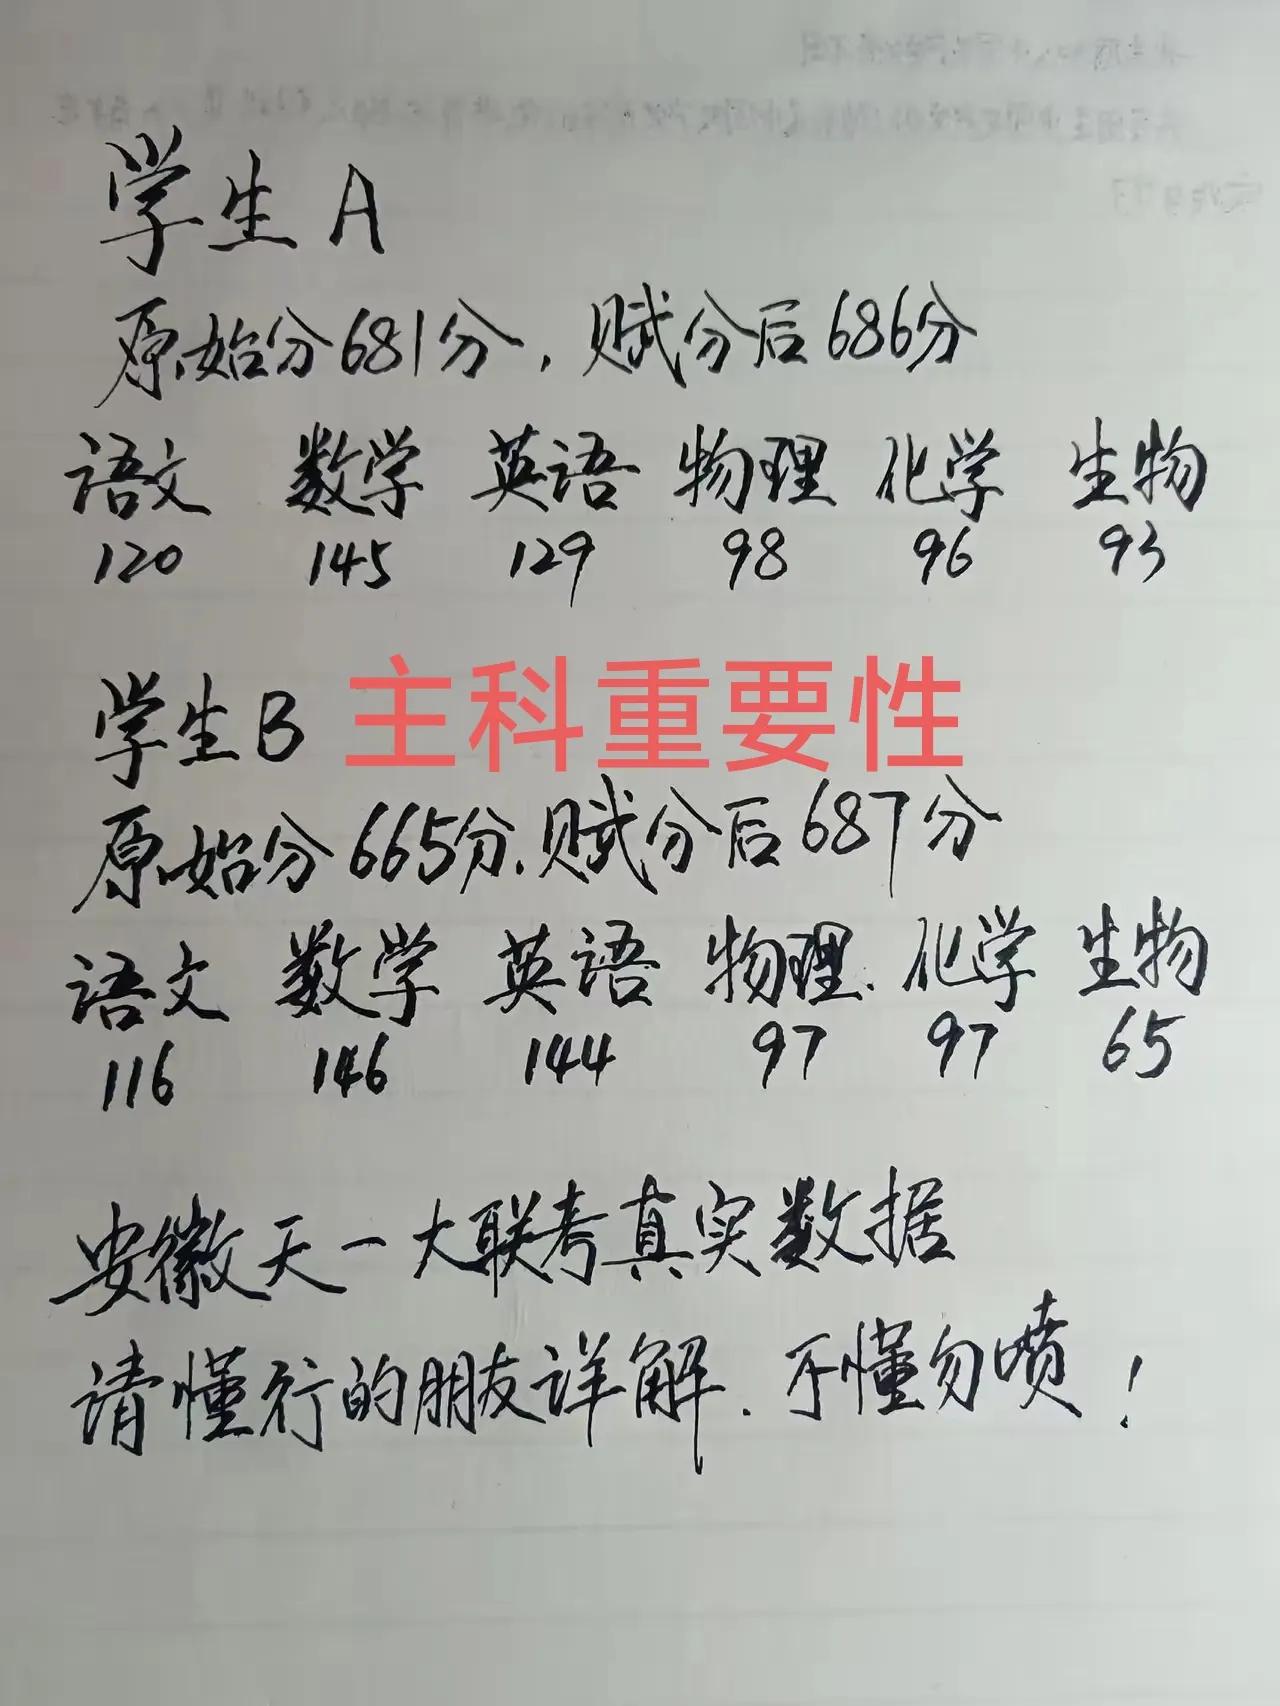 学生A
原始分681分，赋分后686分
语文 数学 英语 物理 化学 生物
120 145 129 98 96 93
学生B 主科重要性
原始分665分.赋分后687分
语文 数学 英语 物理. 化学 生物
116 146 144 97 97 65
安徽天一大联考真实数据
请懂行的朋友详解.不懂勿喷！